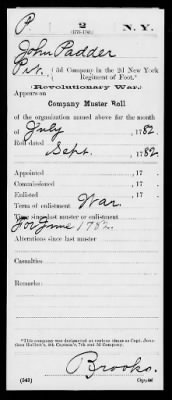 P. 2 N.Y.
(1775-1783.)
John Padder
Pvt., 3d Company in the 2d New York
Regiment of Foot.*
(Revolutionary War.)
Appears on
Company Muster Roll
of the organization named above for the month
of July, 1782.
Roll dated
Sept., 1782.
Appointed , 17 .
Commissioned , 17 .
Enlisted , 17 .
Term of enlistment War.
Time since last muster or enlistment
For June 1782.
Alterations since last muster
Casualties
Remarks:
*This company was designated at various times as Capt. Jona-
than Hallett's, 6th Captain's, 7th and 3d Company.
Brooks.
(543) Copyist.